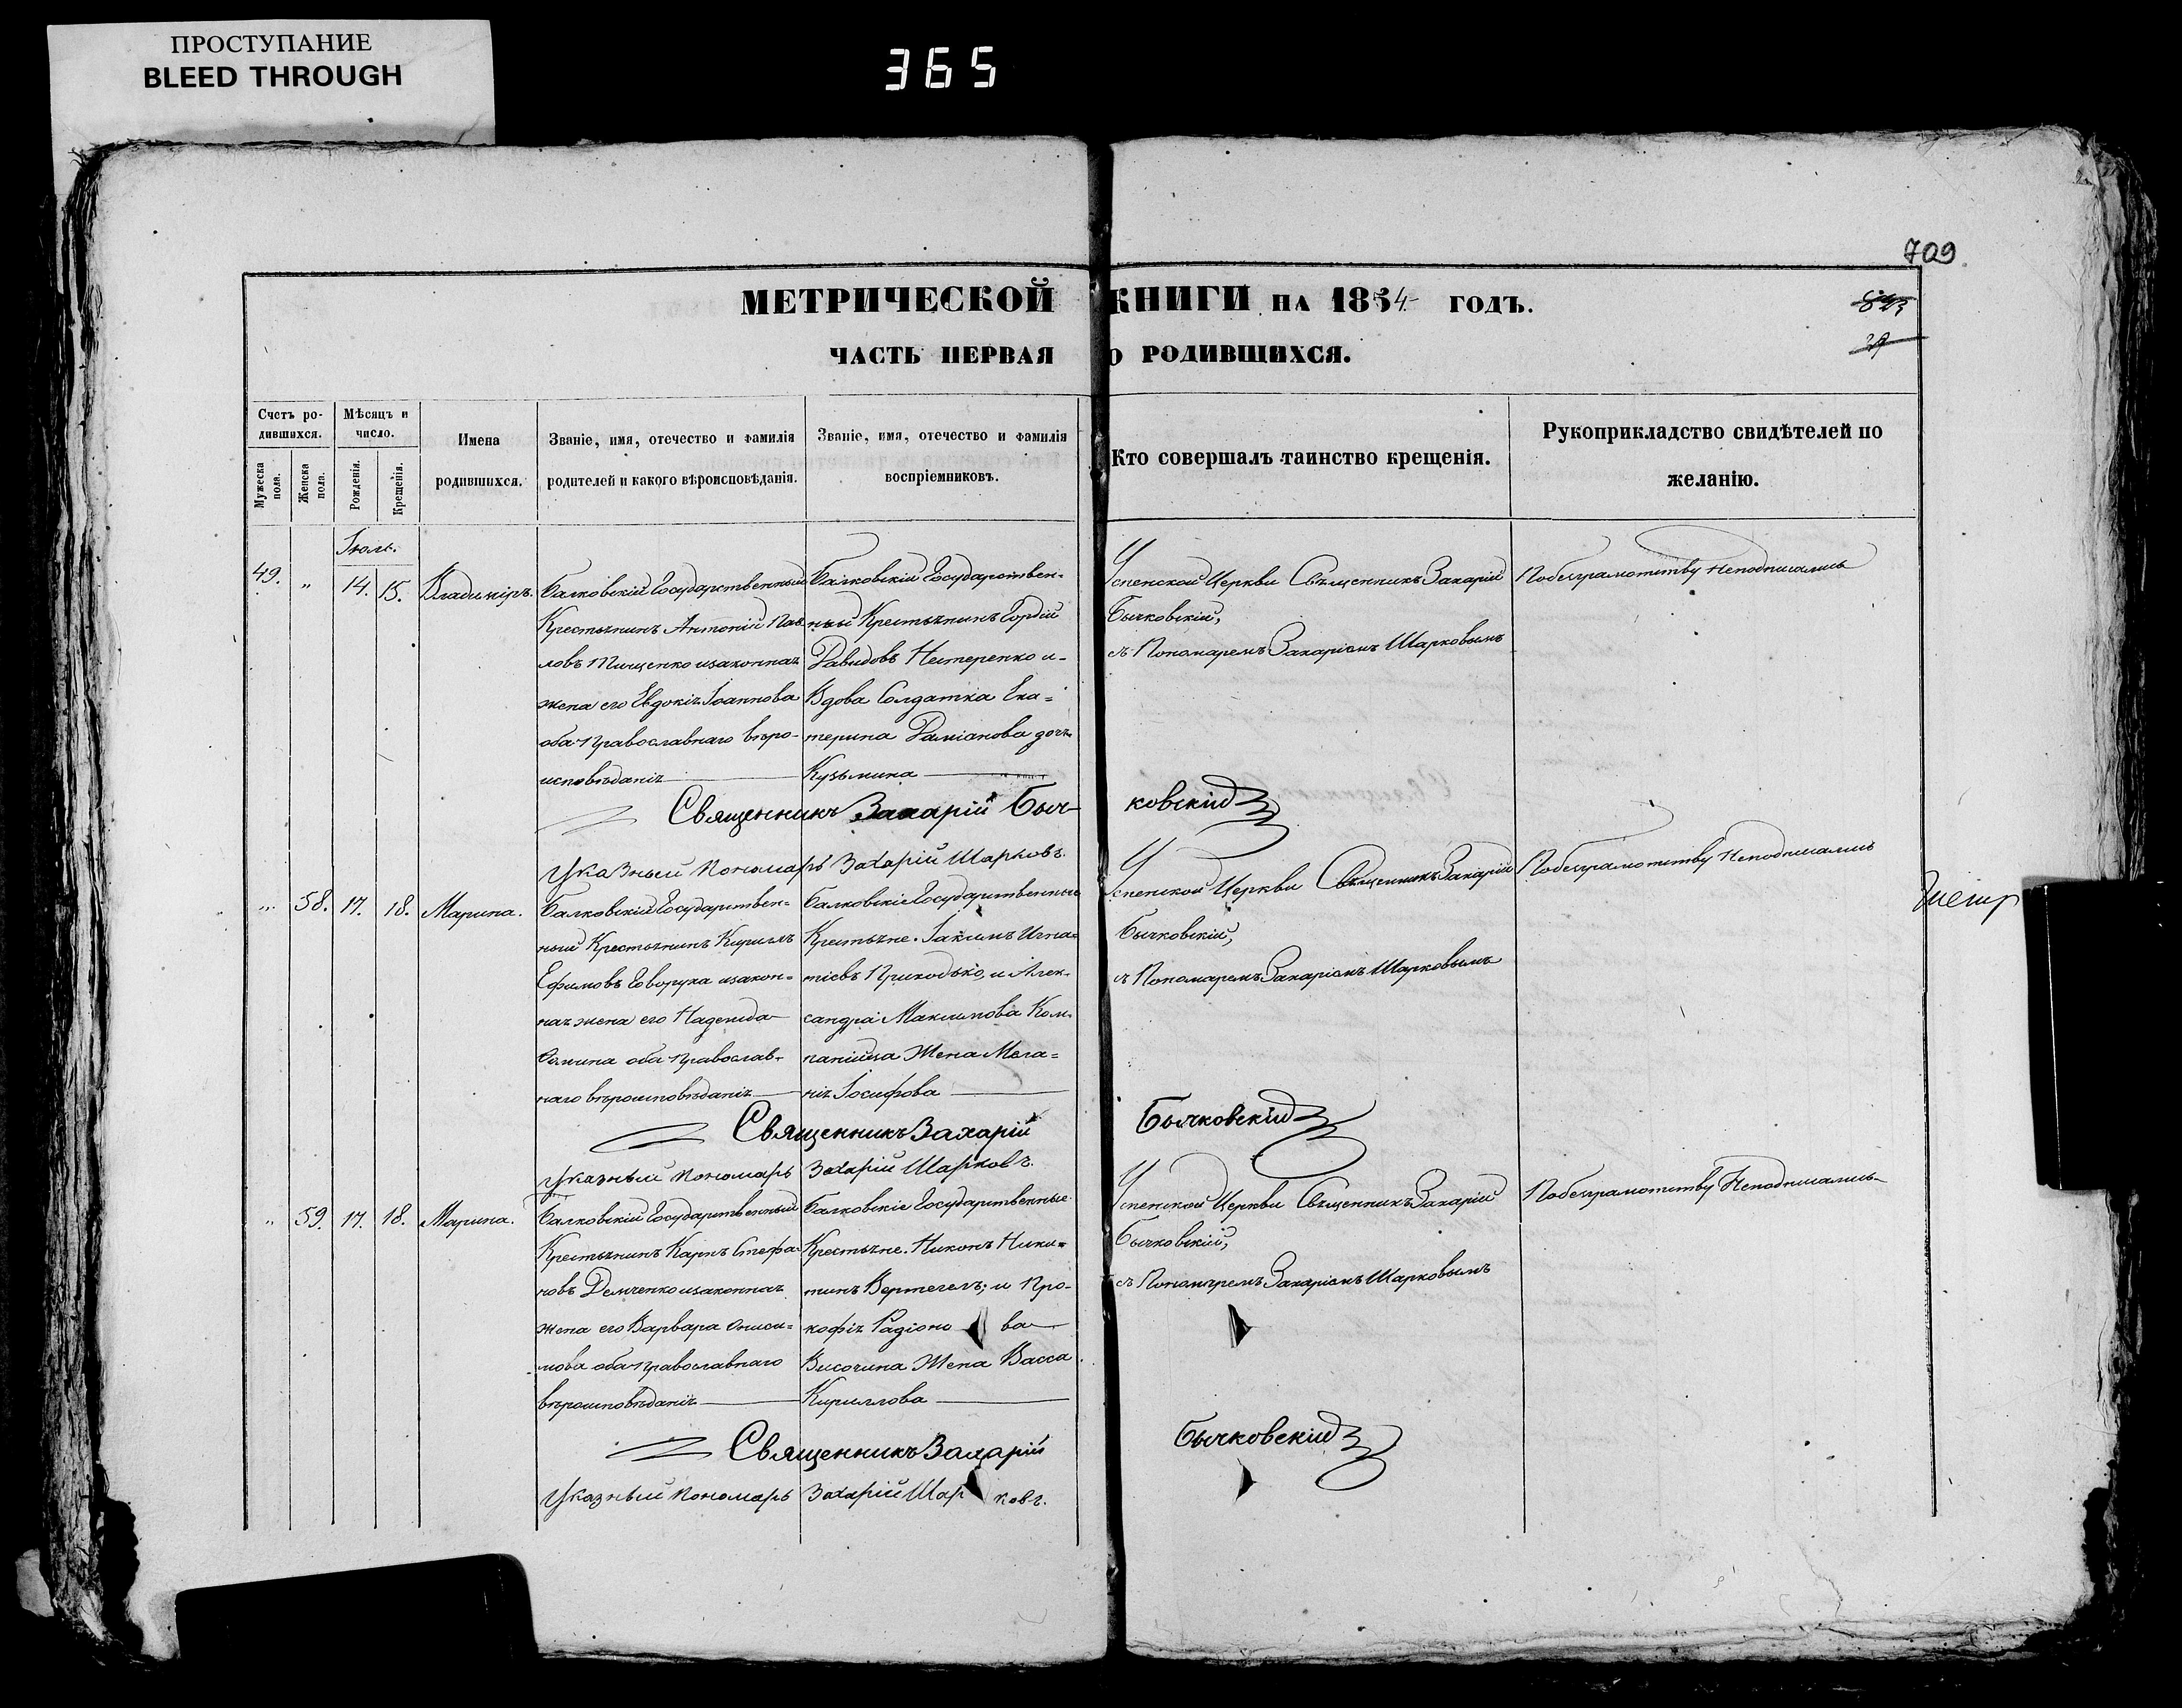 ПРОСТУПАНИЕ
BLEED THROUGH
365
709
МЕТРИЧЕСКОЙ КНИГИ НА 1854 ГОДЪ.
ЧАСТЬ ПЕРВАЯ О РОДИВШИХСЯ.
29
Счетъ ро-
дившихся.
Мужеска пола.
Женска пола.
Мѣсяцъ и
число.
Рожденія.
Крещенія.
Имена
родившихся.
Званіе, имя, отечество и фамилія
родителей и какого вѣроисповѣданія.
Званіе, имя, отечество и фамилія
воспріемниковъ.
Кто совершалъ таинство крещенія.
Рукоприкладство свидѣтелей по
желанію.
Іюль.
49. „ 14. 15. Владиміръ.
Балковскій Государственный
Крестьянинъ Антоній Пав-
ловъ Тищенко изаконная
жена его Евдокія Іоаннова
оба православнаго вѣро-
исповѣданія
Балковскій Государствен-
ный Крестьянинъ Гордій
Давидовъ Нестеренко и
Вдова Солдатка Ека=
терина Даміанова дочь
Кузьмина
Успенской Церкви Священникъ Захарій
Бычковскій,
съ Пономаремъ Захаріемъ Шарковымъ
Побезграмотству Неподписались
Священникъ Захарій Быч-ковскій
Указный Пономарь Захарій Шарковъ.
„ 58. 17. 18. Марина.
Балковскій Государствен=
ный Крестьянинъ Кирилъ
Ефимовъ Говоруха изакон=
ная жена его Надежда
Фомина оба православ-
наго вѣроисповѣданія
Балковскіе Государственные
Крестьяне. Іакимъ Игна=
тіевъ Приходько, и Алек-
сандра Максимова Ком-
панійца Жена Мела=
нія Іосифова
Успенской Церкви Священникъ Захарій
Бычковскій,
съ Пономаремъ Захаріемъ Шарковымъ
Побезграмотству Неподписались
Священникъ Захарій Бычковскій
Указный Пономарь Захарій Шарковъ.
„ 59. 17. 18. Марина.
Балковскій Государственный
Крестьянинъ Карпъ Стефа-
новъ Демченко изаконная
жена его Варвара Ониси=
мова оба православнаго
вѣроисповѣданія
Балковскіе Государственные
Крестьяне. Никонъ Ники=
тинъ Вертегелъ; и Про-
кофія Радіонова
Височина Жена Васса
Кириллова
Успенской Церкви Священникъ Захарій
Бычковскій,
съ Пономаремъ Захаріемъ Шарковымъ
Побезграмотству Неподписались
Священникъ Захарій Бычковскій
Указный Пономарь Захарій Шарковъ.